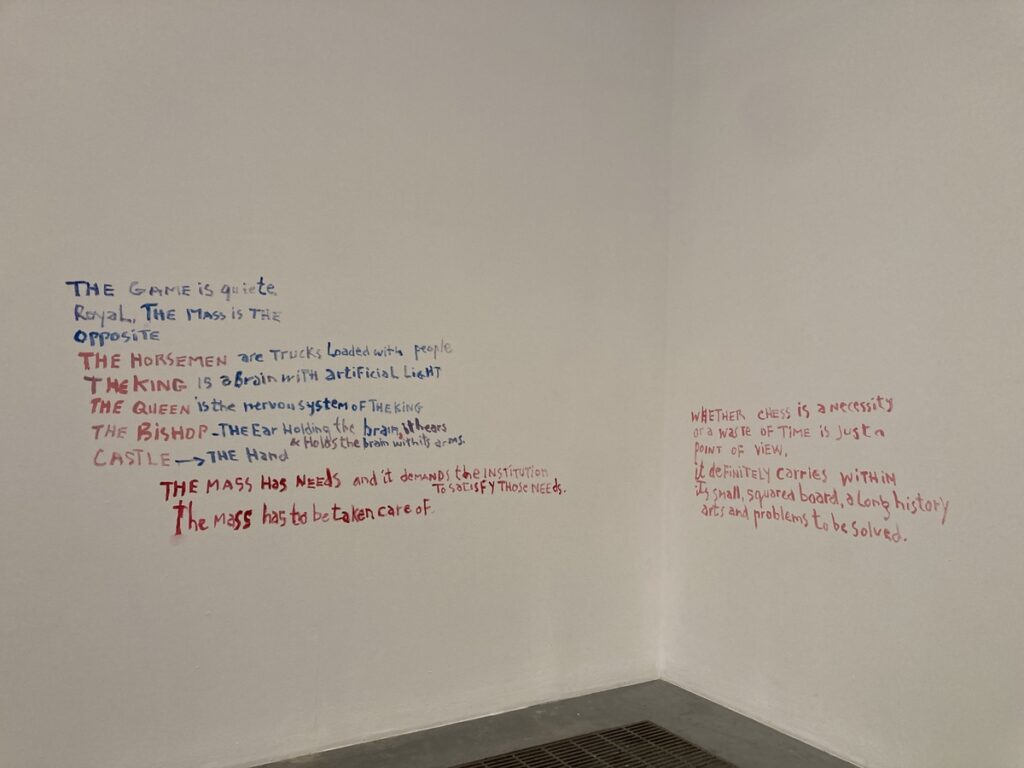 THE GAME is quiete
Royal, THE MASS is THE
OPPOSITE
THE HORSEMEN are TRUCKS Loaded with people
THE KING IS a Brain WITH artificial LIGHT
THE QUEEN is the nervous system OF THE KING
THE BISHOP - THE Ear Holding the brain, it hears
& Holds the brain with its arms.
CASTLE → THE Hand
THE MASS Has NEEDS and it demands the INSTITUTION
To satisfy THOSE NEEDS.
The mass has to be taken care of.
WHETHER CHESS is a necessity
or a WASTE OF TIME is just a
POINT OF VIEW,
it definitely carries WITHIN
its small, squared board, a long history
arts and problems to be solved.